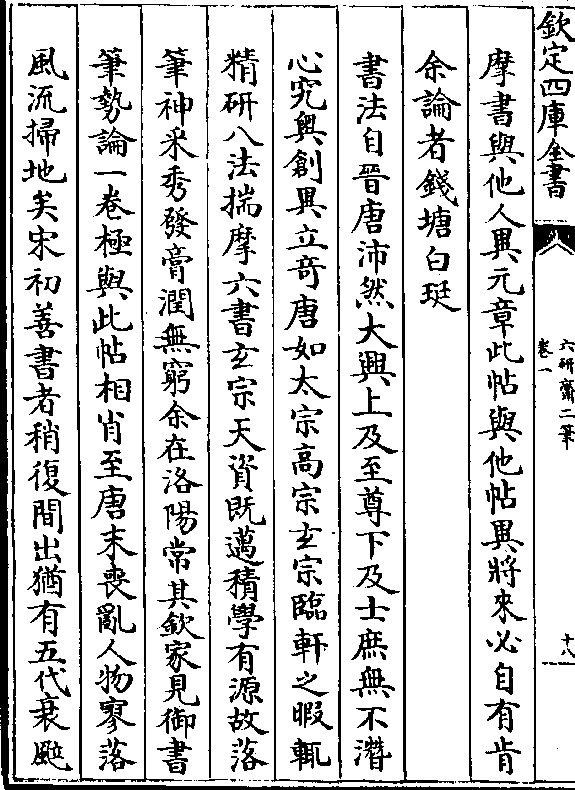 欽定四庫全書
六研齋二筆
卷一
十八
摩書與他人異元章此帖與他帖異將來必自有肯
余論者錢塘白珽
書法自晉唐沛然大興上及至尊下及士庶無不潛
心究輿創異立奇唐如太宗高宗玄宗臨軒之暇輒
精研八法揣摩六書玄宗天資既邁積學有源故落
筆神采秀發膏潤無窮余在洛陽常其欽家見御書
筆勢論一卷極與此帖相肖至唐末喪亂人物寥落
風流掃地矣宋初善書者稍復間出猶有五代衰颰